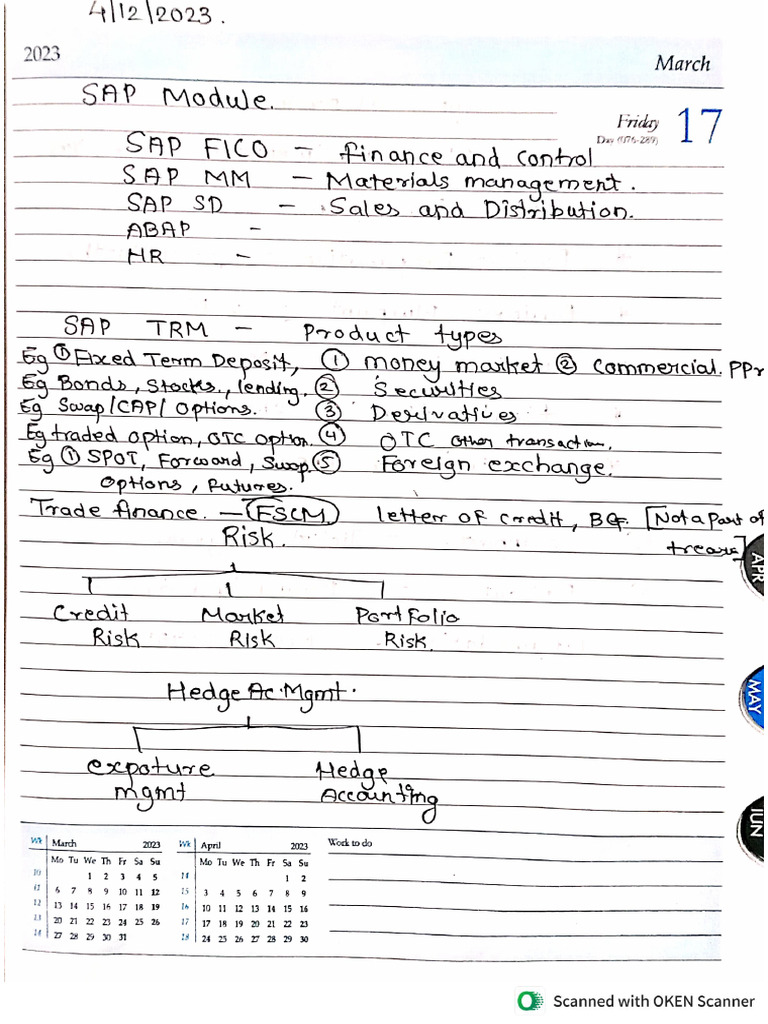 4/12/2023.
2023 March
SAP Module.
Friday 17
Day (076-289)
SAP FICO - Finance and control
SAP MM - Materials management.
SAP SD - Sales and Distribution.
ABAP -
HR -
SAP TRM - Product types
Eg ① Fixed Term Deposit, ① money market ② Commercial. PPr
Eg Bonds, Stocks, lending. ② Securities
Eg Swap/CAP/ Options. ③ Derivatives
Eg traded option, OTC option. ④ OTC other transaction.
Eg ① SPOT, Forward, Swap. ⑤ Foreign exchange.
Options, Futures.
Trade finance. - FSCM letter of credit, BG. [Not a part of
treasu]
Risk.
APR
Credit Market Portfolio
Risk Risk Risk.
MAY
Hedge Ac. Mgmt.
expoture Hedge
mgmt Accounting
JUN
Wk March 2023 Wk April 2023 Work to do
Mo Tu We Th Fr Sa Su Mo Tu We Th Fr Sa Su
10 1 2 3 4 5 14 1 2
11 6 7 8 9 10 11 12 15 3 4 5 6 7 8 9
12 13 14 15 16 17 18 19 16 10 11 12 13 14 15 16
13 20 21 22 23 24 25 26 17 17 18 19 20 21 22 23
14 27 28 29 30 31 18 24 25 26 27 28 29 30
Scanned with OKEN Scanner